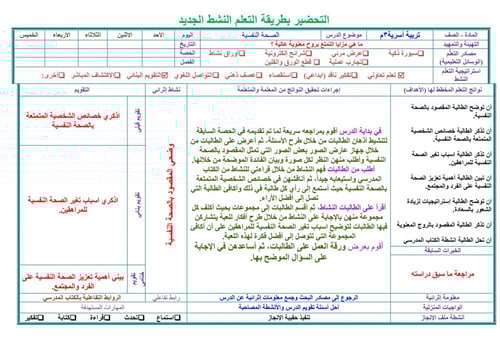 التحضير بطريقة التعلم النشط الجديد
المادة - الصف
تربية أسرية٣م
موضوع الدرس
الصحة النفسية
اليوم
الاحد
الاثنين
الثلاثاء
الاربعاء
الخميس
التهيئة والتمهيد
ما هي مزايا التمتع بروح معنوية عالية ؟
التاريخ
مصادر التعلم
(الوسائل التعليمية)
سبورة ذكية
عرض مرئي
شرائح الكترونية
أوراق نشاط
الحصة
تجارب عملية
قطع الورق والفلين
الفصل
استراتيجية التعلم
النشط
تعلم تعاوني
تفكير ناقد (إبداعي)
استقصاء
عصف ذهني
التواصل اللغوي
التقويم البنائي
الاكتشاف المباشر
أخرى:
نتاج التعلم المخطط لها (الأهداف)
إجراءات تحقيق النواتج من المعلمة والمتعلمة
نشاط إثرائي
التقويم
أن توضح الطالبة المقصود بالصحة النفسية.
أن تذكر الطالبة خصائص الشخصية المتمتعة بالصحة النفسية.
أن تذكر الطالبة أسباب تغير الصحة النفسية للمراهقين.
أن تبين الطالبة أهمية تعزيز الصحة النفسية على الفرد والمجتمع.
أن توضح الطالبة إستراتيجيات لزيادة الشعور بالسعادة.
أن تذكر الطالبة المقصود بالروح المعنوية
أن تحل الطالبة أنشطة الكتاب المدرسي
الخبرات السابقة
مراجعة ما سبق دراسته
في بداية الدرس أقوم بمراجعه سريعة لما تم تقديمه في الحصة السابقة
لتنشيط أذهان الطالبات من خلال طرح الأسئلة، ثم أعرض على الطالبات من
خلال جهاز عارض الصور بعض الصور التي تمثل المقصود بالصحة
النفسية وأطلب منهن النظر لكل صورة وبيان الفائدة الموضحة من خلالها.
أطلب من الطالبات فهم النشاط من خلال قراءتي للنشاط من الكتاب
المدرسي واستيعابه جيداً، ثم أناقشهن في خصائص الشخصية المتمتعة
بالصحة النفسية حيث أستمع إلى رأي كل طالبة في ذلك وأكافئ الطالبة التي
تصل إلى أفضل الآراء.
أقرأ على الطالبات النشاط، ثم أقسم الطالبات إلى مجموعات بحيث أكلف كل
مجموعة منهن بالإجابة على النشاط من خلال طرح أفكار للعبة يتشاركن
فيها الطالبات لتوضيح أسباب تغير الصحة النفسية للمراهقين على أن أكافئ
المجموعة التي تتوصل إلى أفضل فكرة لهذه اللعبة.
أقوم بعرض ورقة العمل على الطالبات، ثم أساعدهن في الإجابة
على السؤال الموضح بها.
وضحي المقصود بالصحة النفسية
تقويم قبلي
اذكري خصائص الشخصية المتمتعة بالصحة النفسية
تقويم بنائي
اذكري أسباب تغير الصحة النفسية للمراهقين.
تقويم ختامي
بيني أهمية تعزيز الصحة النفسية على الفرد والمجتمع.
معلومة إثرائية
الرجوع إلى مصادر البحث وجمع معلومات إثرائية عن الدرس
رابط تفاعلي
الروابط التفاعلية بالكتاب المدرسي
الواجبات المنزلية
حل أسئلة تقويم الدرس والأنشطة المصاحبة
المهارات المستهدفة
أنشطة ملف الإنجاز
تنفيذ حقيبة الإنجاز
استماع
تحدث
قراءة
كتابة
تفكير